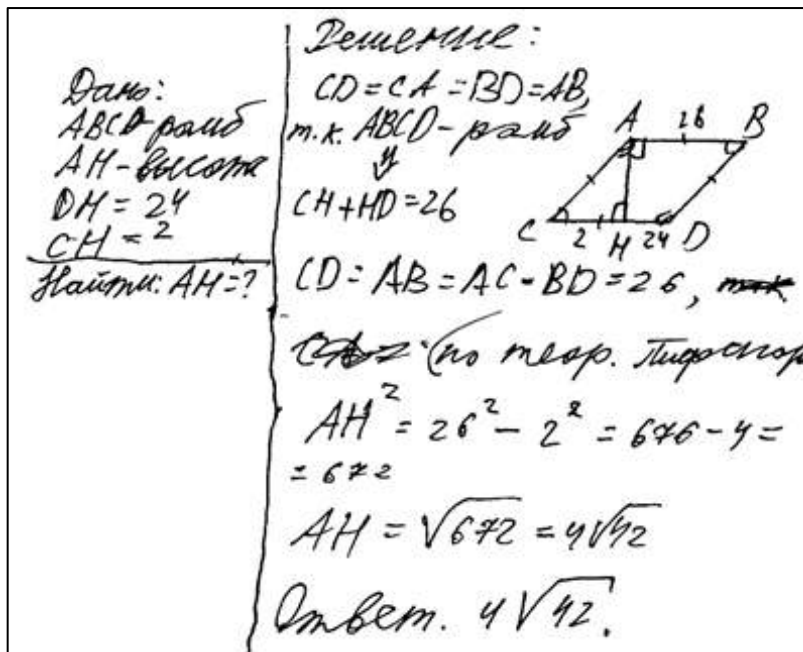 Дано:
ABCD-ромб
AH-высота
DH = 24
CH = 2
Найти: AH=?
Решение:
CD = CA = BD = AB,
т.к. ABCD-ромб
CH+HD=26
A 26 B
C 2 H 24 D
CD = AB = AC = BD = 26,
(по теор. Пифагор
AH² = 26² - 2² = 676 - 4 =
= 672
AH = √672 = 4√42
Ответ. 4√42.